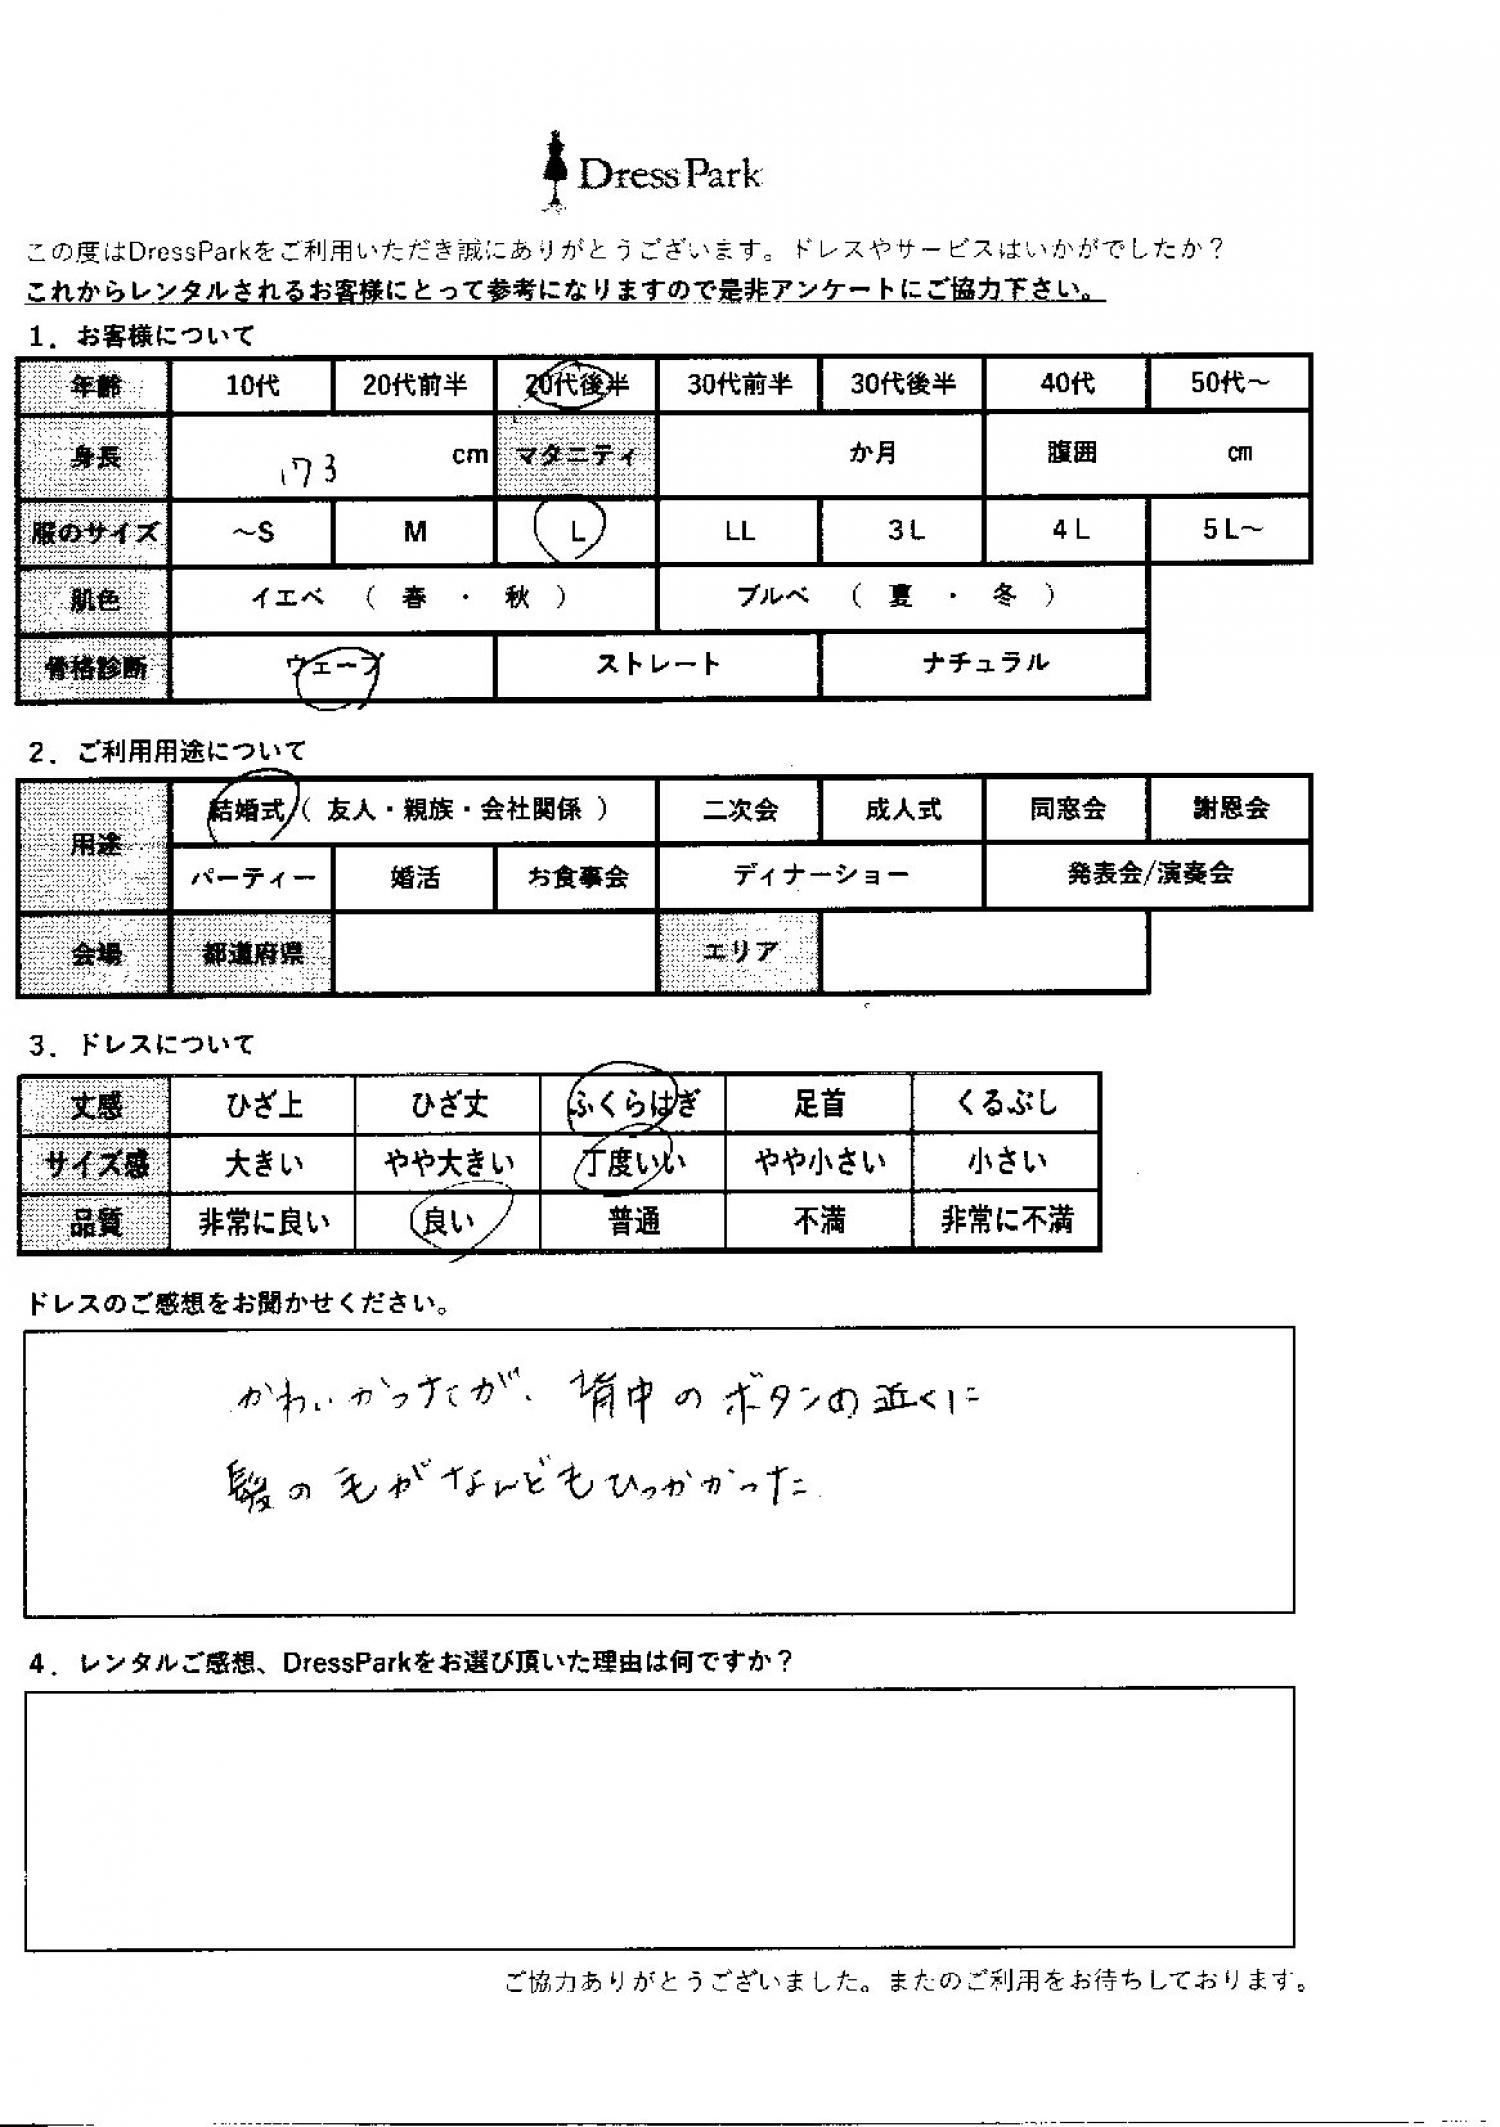 DressPark
この度はDressParkをご利用いただき誠にありがとうございます。ドレスやサービスはいかがでしたか？
これからレンタルされるお客様にとって参考になりますので是非アンケートにご協力下さい。
1．お客様について
年齢 10代 20代前半 20代後半 30代前半 30代後半 40代 50代～
身長 173 cm マタニティ か月 腹囲 cm
服のサイズ ～S M L LL 3L 4L 5L～
肌色 イエベ （ 春 ・ 秋 ） ブルベ （ 夏 ・ 冬 ）
骨格診断 ウェーブ ストレート ナチュラル
2．ご利用用途について
用途 結婚式（ 友人・親族・会社関係 ） 二次会 成人式 同窓会 謝恩会
パーティー 婚活 お食事会 ディナーショー 発表会/演奏会
会場 都道府県 エリア
3．ドレスについて
丈感 ひざ上 ひざ丈 ふくらはぎ 足首 くるぶし
サイズ感 大きい やや大きい 丁度いい やや小さい 小さい
品質 非常に良い 良い 普通 不満 非常に不満
ドレスのご感想をお聞かせください。
かわいかったが、背中のボタンの近くに
髪の毛がなんどもひっかかった
4．レンタルご感想、DressParkをお選び頂いた理由は何ですか？
ご協力ありがとうございました。またのご利用をお待ちしております。